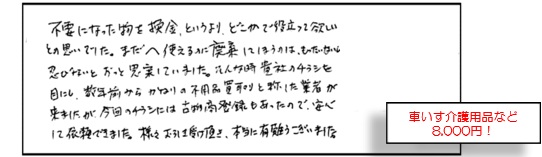 不要になった物を換金、というより、どこかで役立って欲しい
との思いでした。まだ使えるのに廃棄してしまうのは、もったいないし
忍びないと ずっと思案していました。そんな時 貴社のチラシを
目にし、数年前から かなりの不用品買取りと称した業者が
来ましたが、今回のチラシには古物商登録もあったので、安心
して依頼できました。様々お引き受け頂き、本当に有難うございました
車いす介護用品など
8,000円！